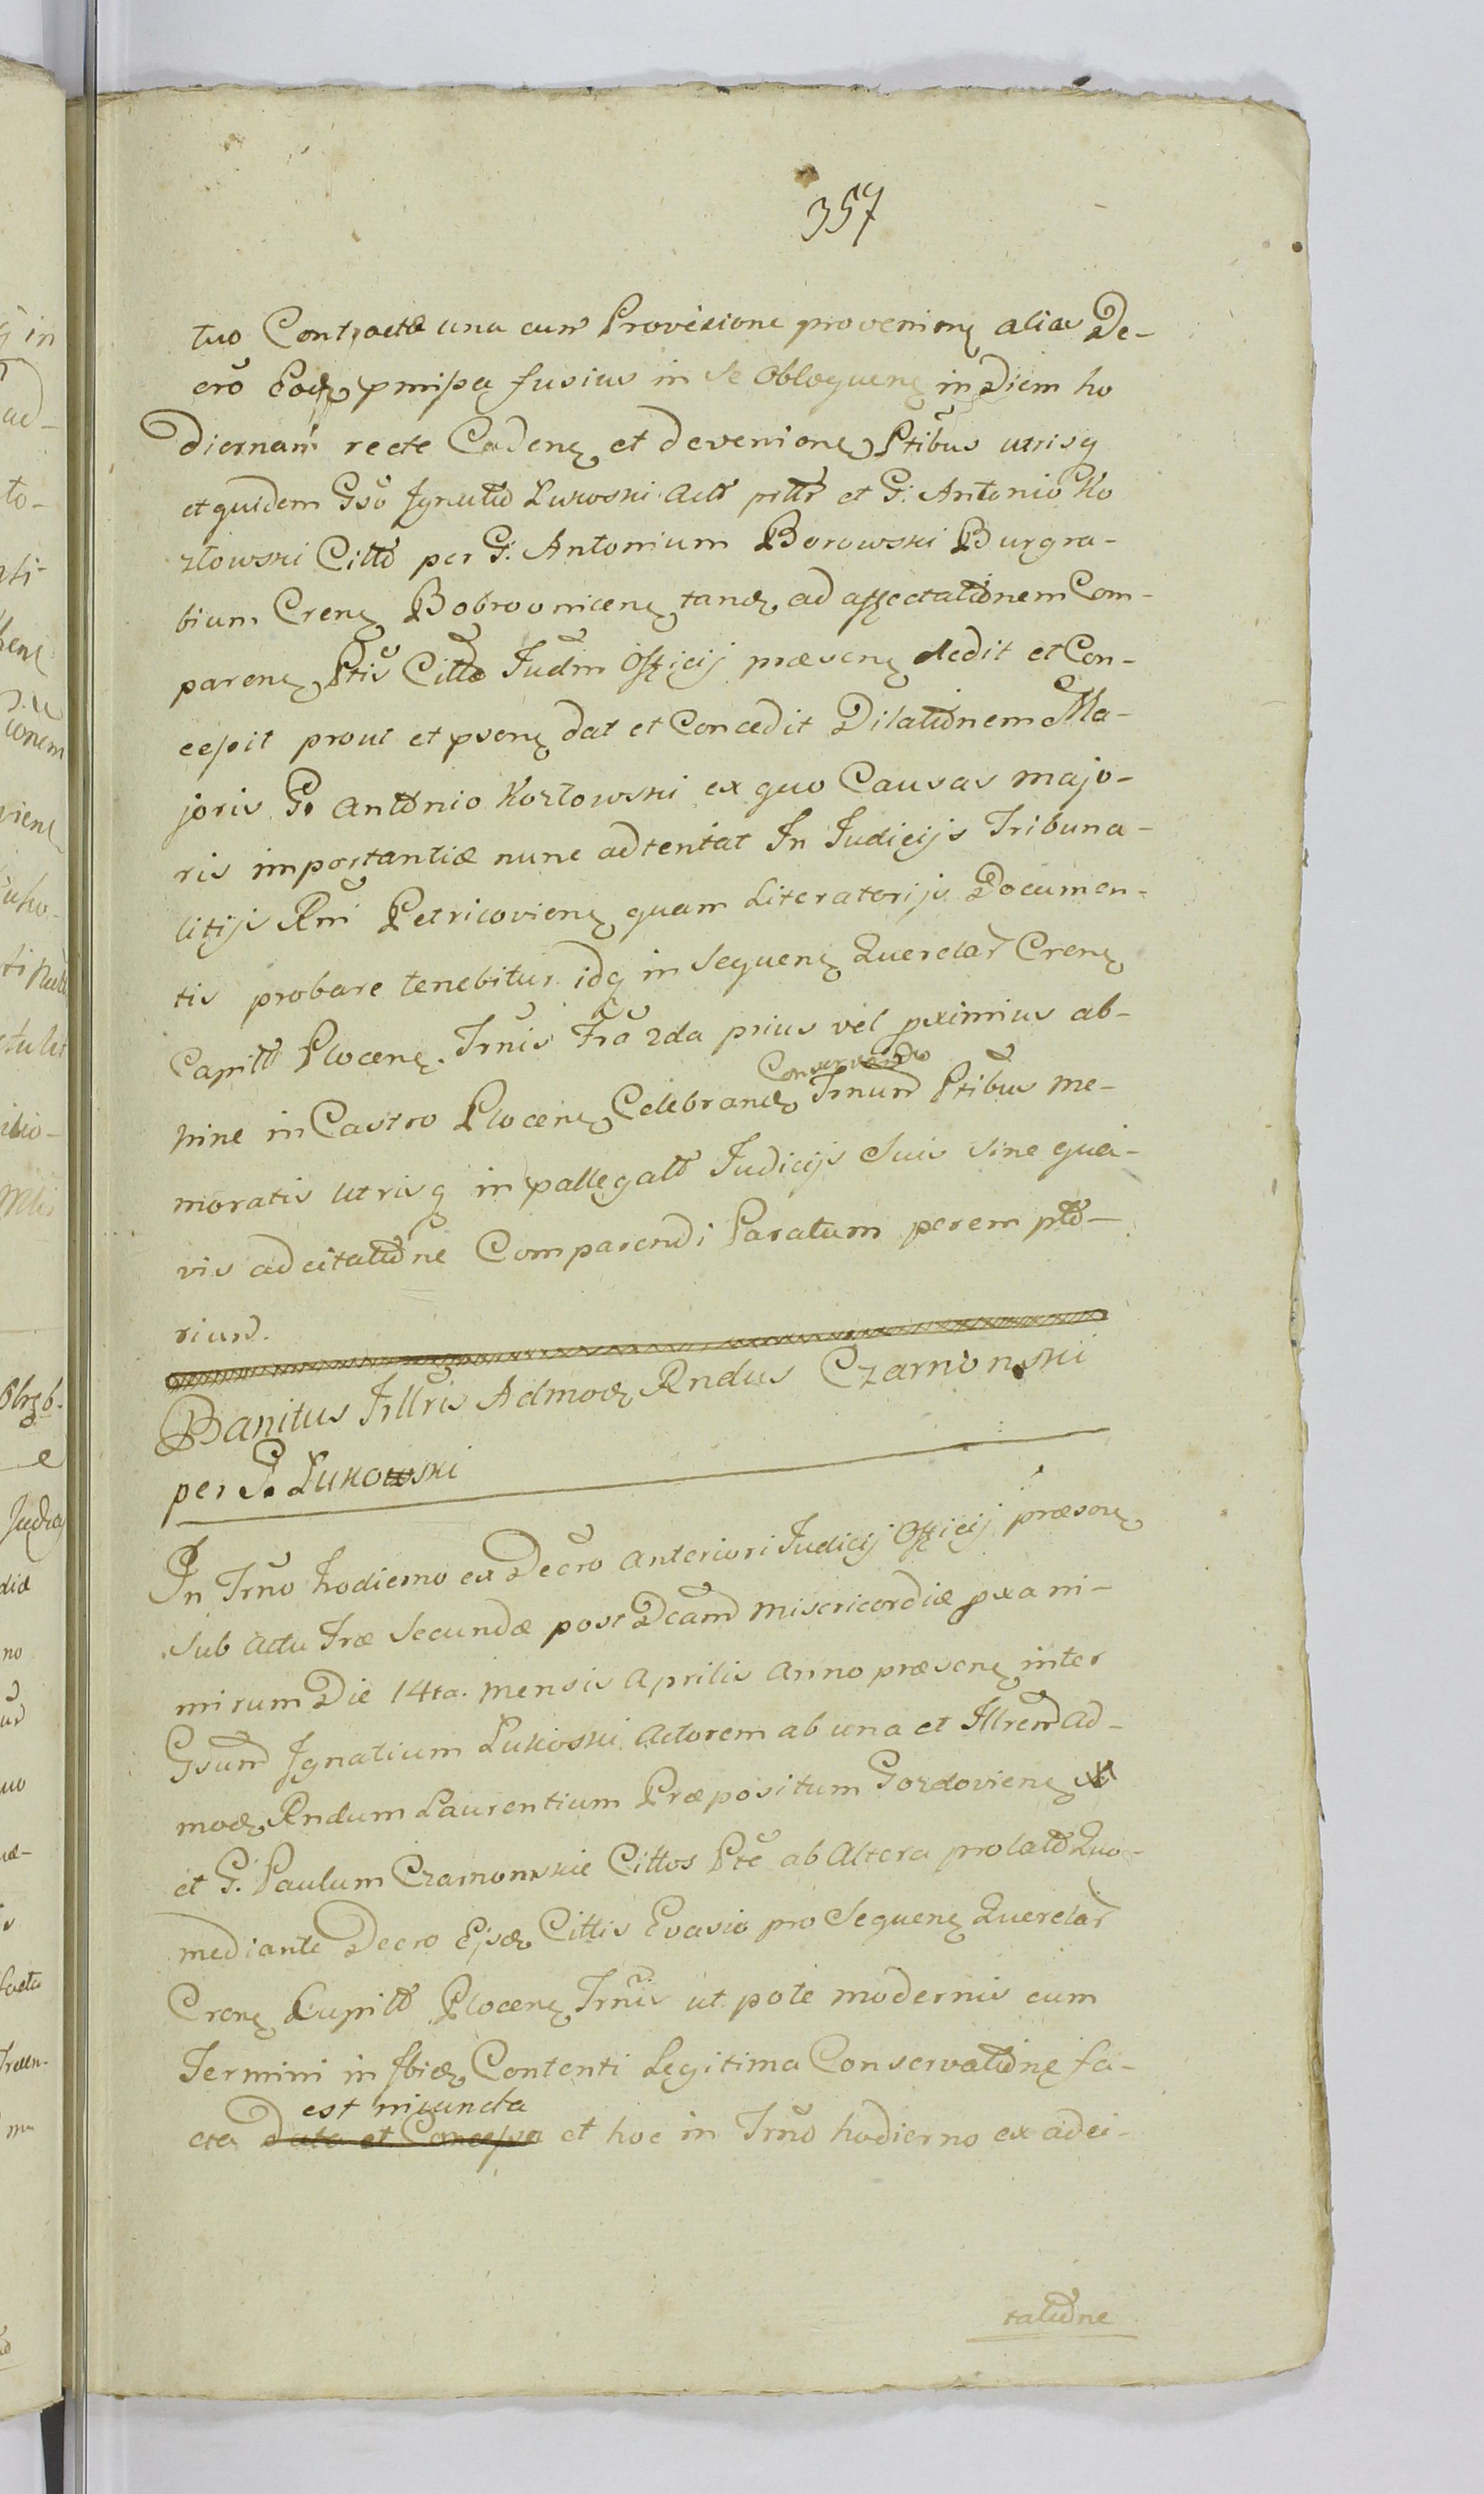 357
tuo Contractæ una cum Provisione provenienę alias De-
crõ Eodę pmissa fusius in se obloquenę in Diem ho
diernam recte Cadenę et devenienę Ptibus utrisq
et quidem Gsõ Ignatio Lukoski Actõ pntti et G. Antonio Ko
złowski Citto per G. Antonium Borowski Burgra-
bium Crenę Bobrovnicenę tandę ad affectationem Com-
parenę Ptis Cittæ Iudm Officij præsenę dedit et Con-
cessit prout et psenę dat et Concedit Dilationem Ma-
joris G. Antonio Kozłowski ex quo Causas majo-
ris importantiæ nunc adtentat In Iudicijs Tribuna-
litijs Rni Petricovienę quam Literatorijs Documen-
tis probare tenebitur idq in Sequenę Querelar Crenę
Capitt Plocenę. Trnis Fra 2da prius vel pximius ab-
hinc in Castro Plocenę Celebrandę Conservando Trnum Ptibus me-
moratis utrisq in pallegatt Iudicijs Suis sine quei-
vis adcitatione Comparendi Paratum perempto-
rium.
Banitus Illris Admodę Rndus Czarnonski
per G. Lukowski
In Trno hodierno ex Decro anteriori Iudicij Officij præsenę
sub Actu Fræ Secundæ post Dcam Misericordiæ pxa ni-
mirum Die 14ta. Mensis Aprilis Anno præsenę inter
Gsum Ignatium Lukoski Actorem ab una et Illrem Ad-
modę Rndum Laurentium Præpositum Gozdovienę
et G. Paulum Czarnomskie Cittos Pte ab Altera prolato Quo-
mediante Decro Ejsdę Cittis Evasio pro Sequenę Querelar
Crenę Capitt Plocenę Trnis ut pote modernis cum
Termini in Ibidę Contenti Legitima Conservatione fa-
est niuncta
cta data et Concessa et hoc in Trno hodierno ex adci-
tatione